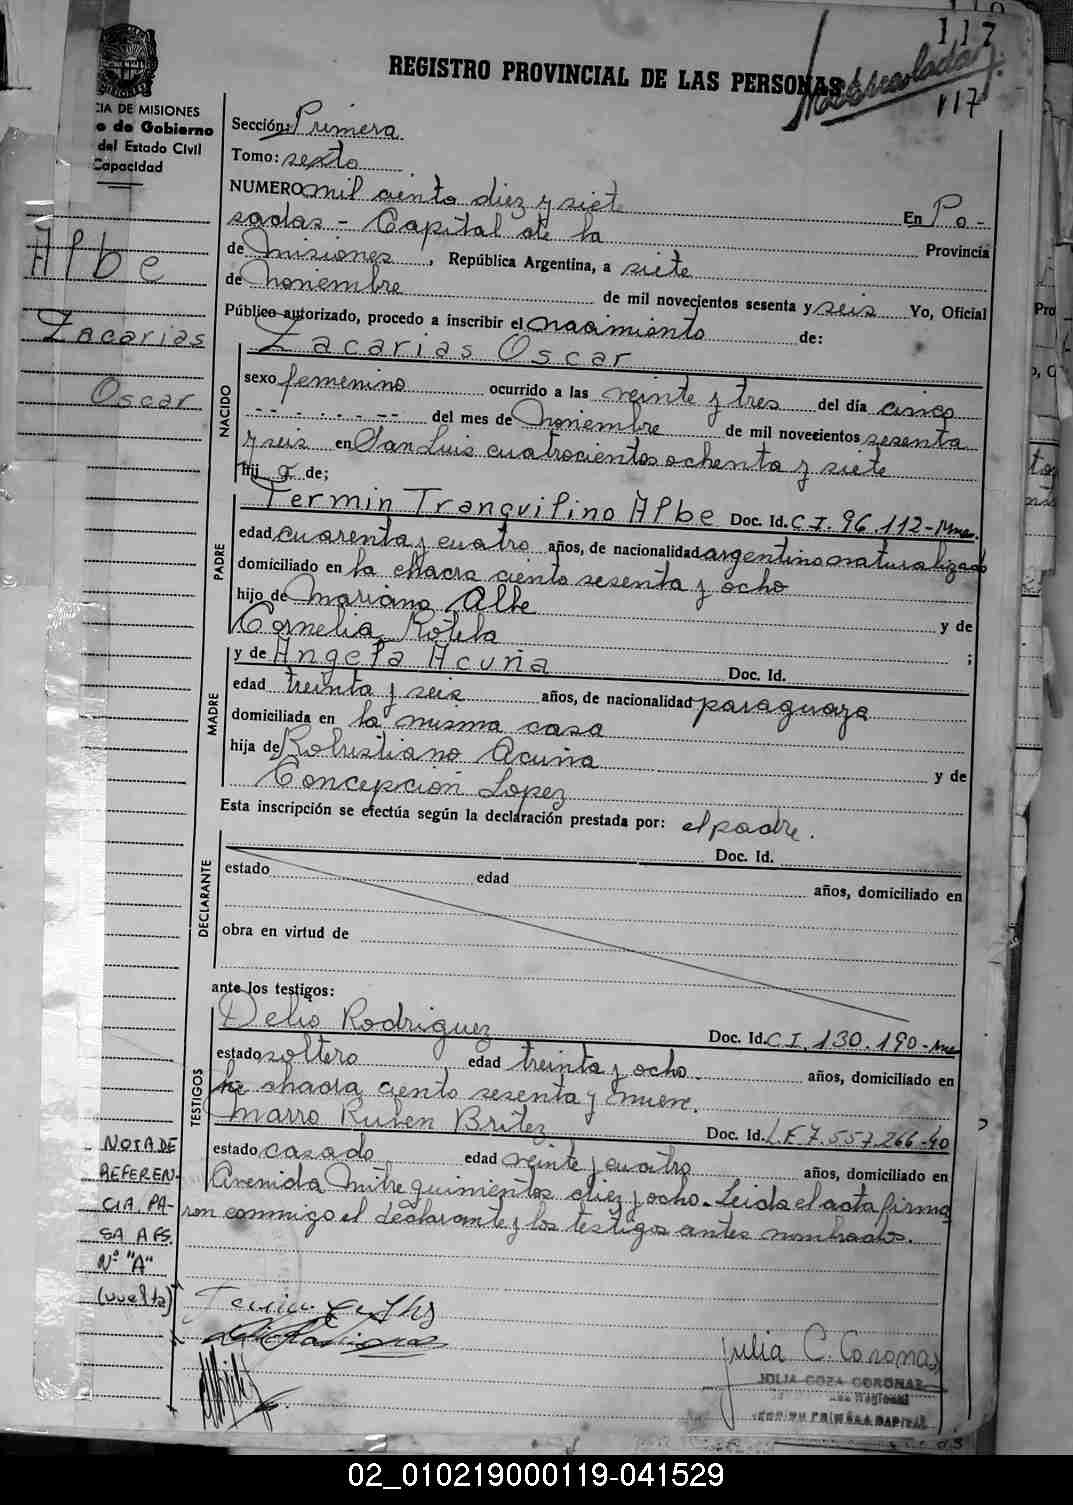 117
REGISTRO PROVINCIAL DE LAS PERSONAS
117
CIA DE MISIONES
o de Gobierno
del Estado Civil
Capacidad
Sección: Primera
Tomo: sexto
NUMERO mil ciento diez y siete En Po-
sadas - Capital de la Provincia
de Misiones, República Argentina, a siete
de Noviembre de mil novecientos sesenta y seis Yo, Oficial
Público autorizado, procedo a inscribir el nacimiento de:
Albe
Zacarias
Oscar
Zacarias Oscar
NACIDO
sexo femenino ocurrido a las veinte y tres del día cinco
-- - . . . - -- del mes de Noviembre de mil novecientos sesenta
y seis en San Luis cuatrocientos ochenta y siete
hij a de;
PADRE
Fermin Tranquilino Albe Doc. Id. C.I. 96.112-Mnes.
edad cuarenta y cuatro años, de nacionalidad argentino naturalizado
domiciliado en la chacra ciento sesenta y ocho
hijo de Mariano Albe y de
Cornelia Rotela ;
MADRE
y de Angela Acuña Doc. Id.
edad treinta y seis años, de nacionalidad paraguaya
domiciliada en la misma casa
hija de Robustiano Acuña y de
Concepción Lopez
Esta inscripción se efectúa según la declaración prestada por: el padre.
DECLARANTE
Doc. Id.
estado edad años, domiciliado en
obra en virtud de
ante los testigos:
TESTIGOS
Delio Rodriguez Doc. Id. C.I. 130.190-Mnes
estado soltero edad treinta y ocho. años, domiciliado en
la chacra ciento sesenta y nueve.
Mario Ruben Britez Doc. Id. L.E. 7.557.266-40
estado casado edad veinte y cuatro años, domiciliado en
Avenida Mitre quinientos diez y ocho. Leida el acta firma
ron conmigo el declarante y los testigos antes nombrados.
NOTA DE
REFEREN-
CIA PA-
SA A FS.
Nº "A"
(vuelta)
Julia C. Coronas
JULIA COZA CORONAS
02_010219000119-041529